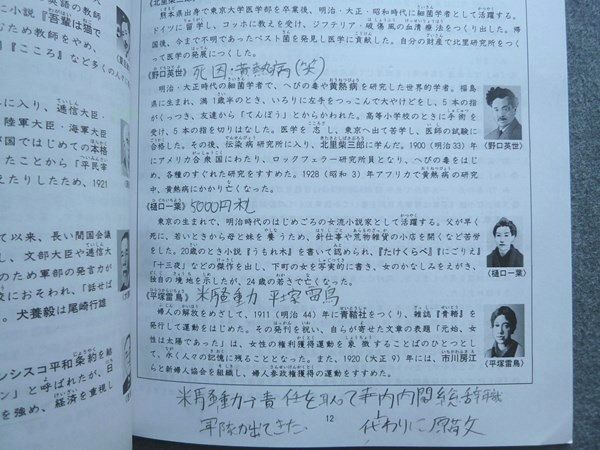 英語の教師
に小説『吾輩は猫で
ため教師をやめ、
『こころ』など多くの人
に入り、逓信大臣・
陸軍大臣・海軍大臣
が国ではじめての本格
たことから「平民宰
いたりしたため、1921
て以来、長い間国会議
し、文部大臣や逓信大
のため軍部の発言力が
校におそわれ、「話せば
。犬養毅は尾崎行雄
ンシスコ平和条約を結
ン」と呼ばれたが、日
を強め、経済を重視し
熊本県出身で東京大学医学部を卒業後、明治・大正・昭和時代に細菌学者として活躍する。
ドイツに留学し、コッホに教えを受け、ジフテリア・破傷風の血清療法をつくり出した。帰
国後、今まで不明であったペスト菌を発見し医学に貢献した。自分の財産で北里研究所をつく
って医学の発展につくした。
(野口英世) 死因・黄熱病(笑)
明治・大正時代の細菌学者で、へびの毒や黄熱病を研究した世界的学者。福島
県に生まれ、満1歳半のとき、いろりに左手をつっこんで大やけどをし、5本の指
がくっつき、友達から「てんぼう」とからかわれた。高等小学校のときに手術を
受け、5本の指を切りはなした。医学を志し、東京へ出て苦学し、医師の試験に
合格した。その後、伝染病研究所に入り、北里柴三郎に学んだ。1900(明治33)年
にアメリカ合衆国にわたり、ロックフェラー研究所員となり、へびの毒をはじ
め、各種のすぐれた研究をすすめた。1928(昭和3)年アフリカで黄熱病の研究
中、黄熱病にかかり亡くなった。
(野口英世)
(樋口一葉) 5000円札
東京の生まれで、明治時代のはじめごろの女流小説家として活躍する。父が早く
死に、若いときから母と妹を養うため、針仕事や荒物雑貨の小店を開くなど苦労
をした。20歳のとき小説『うもれ木』を書いて認められ、『たけくらべ』『にごりえ』
『十三夜』などの傑作を出し、下町の女を写実的に書き、女のかなしみをえがき、
独自の境地を示したが、24歳の若さで亡くなった。
(樋口一葉)
(平塚雷鳥) 米騒動 平塚雷鳥
婦人の解放をめざして、1911(明治44)年に青鞜社をつくり、雑誌『青鞜』を
発行して運動をはじめた。その発刊を祝い、自らが寄せた文章の表題「元始、女
性は太陽であった」は、女性の権利獲得運動を象徴することばのひとつとし
て、永く人々の記憶に残ることとなった。また、1920(大正9)年には、市川房江
らと新婦人協会を組織し、婦人参政権獲得の運動をすすめた。
(平塚雷鳥)
米騒動→責任を取って寺内内閣総辞職
軍隊が出てきた
代わりに原敬
12